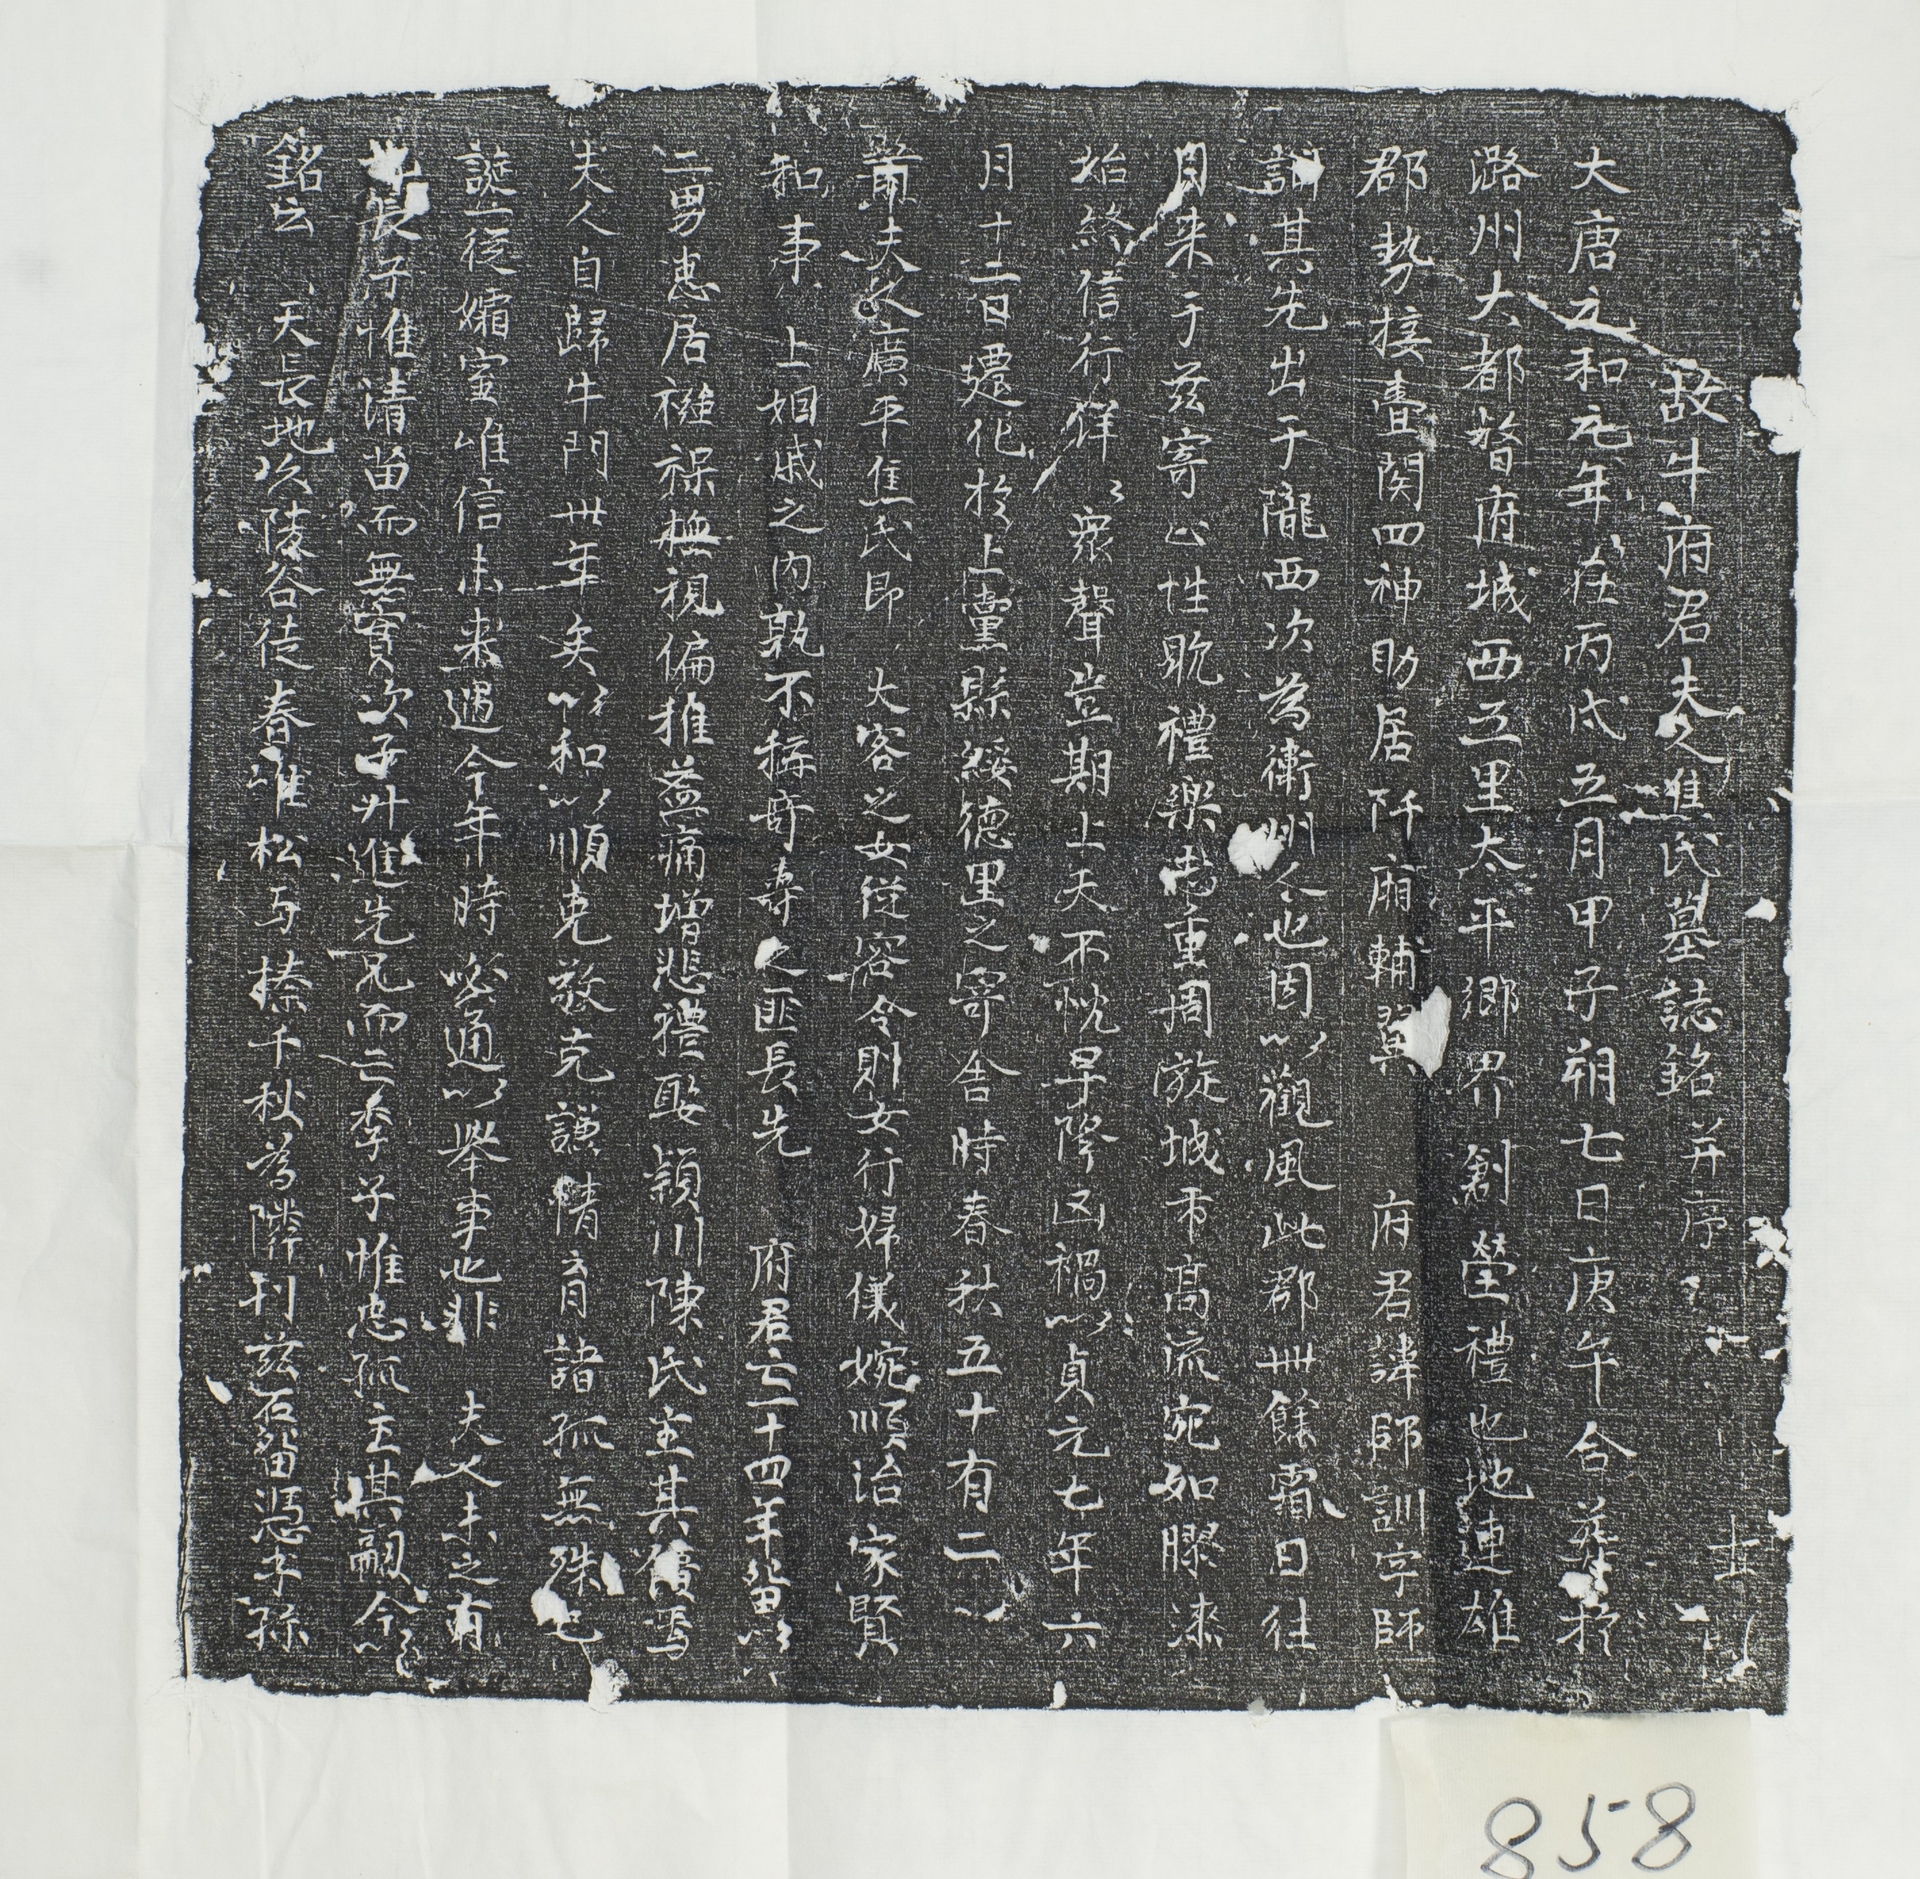 故牛府君夫人焦氏墓誌銘并序
大唐元和元年在丙戌五月甲子朔七日庚午合葬於
潞州大都督府城西五里太平鄉界創塋禮也地連雄
郡勢接壺関四神助居阡廟輔翼 府君諱師訓字師
訓其先出于隴西次為衛州人也因以觀風此郡卅餘霜日往
月来于兹寄心性耽禮樂志重周旋城市高流宛如膠漆
始終信行鮮〻衆聲豈期上天不忱早降凶禍以貞元七年六
月十二日遷化於上黨縣綏德里之寄舍時春秋五十有二以
夫故廣平焦氏即 大客之女從容令則女行婦儀婉順治家賢
和事上姻戚之内孰不稱奇壽之匪長先 府君亡十四年留以
二男恚居襁褓撫視偏推益痛增悲禮娶潁川陳氏主其焉
夫人自歸牛門卅年矣以和以順克敬克謙情育諸孤無殊己
誕一從孀室唯信未来遇今年時必通以舉事也非 夫人未之有
長子惟清苗而無實次子廾進先兄而亡季子惟忠孤主其嗣今以
銘云 天長地久陵谷徒春唯松与檟千秋為隣刊兹石留憑字孫